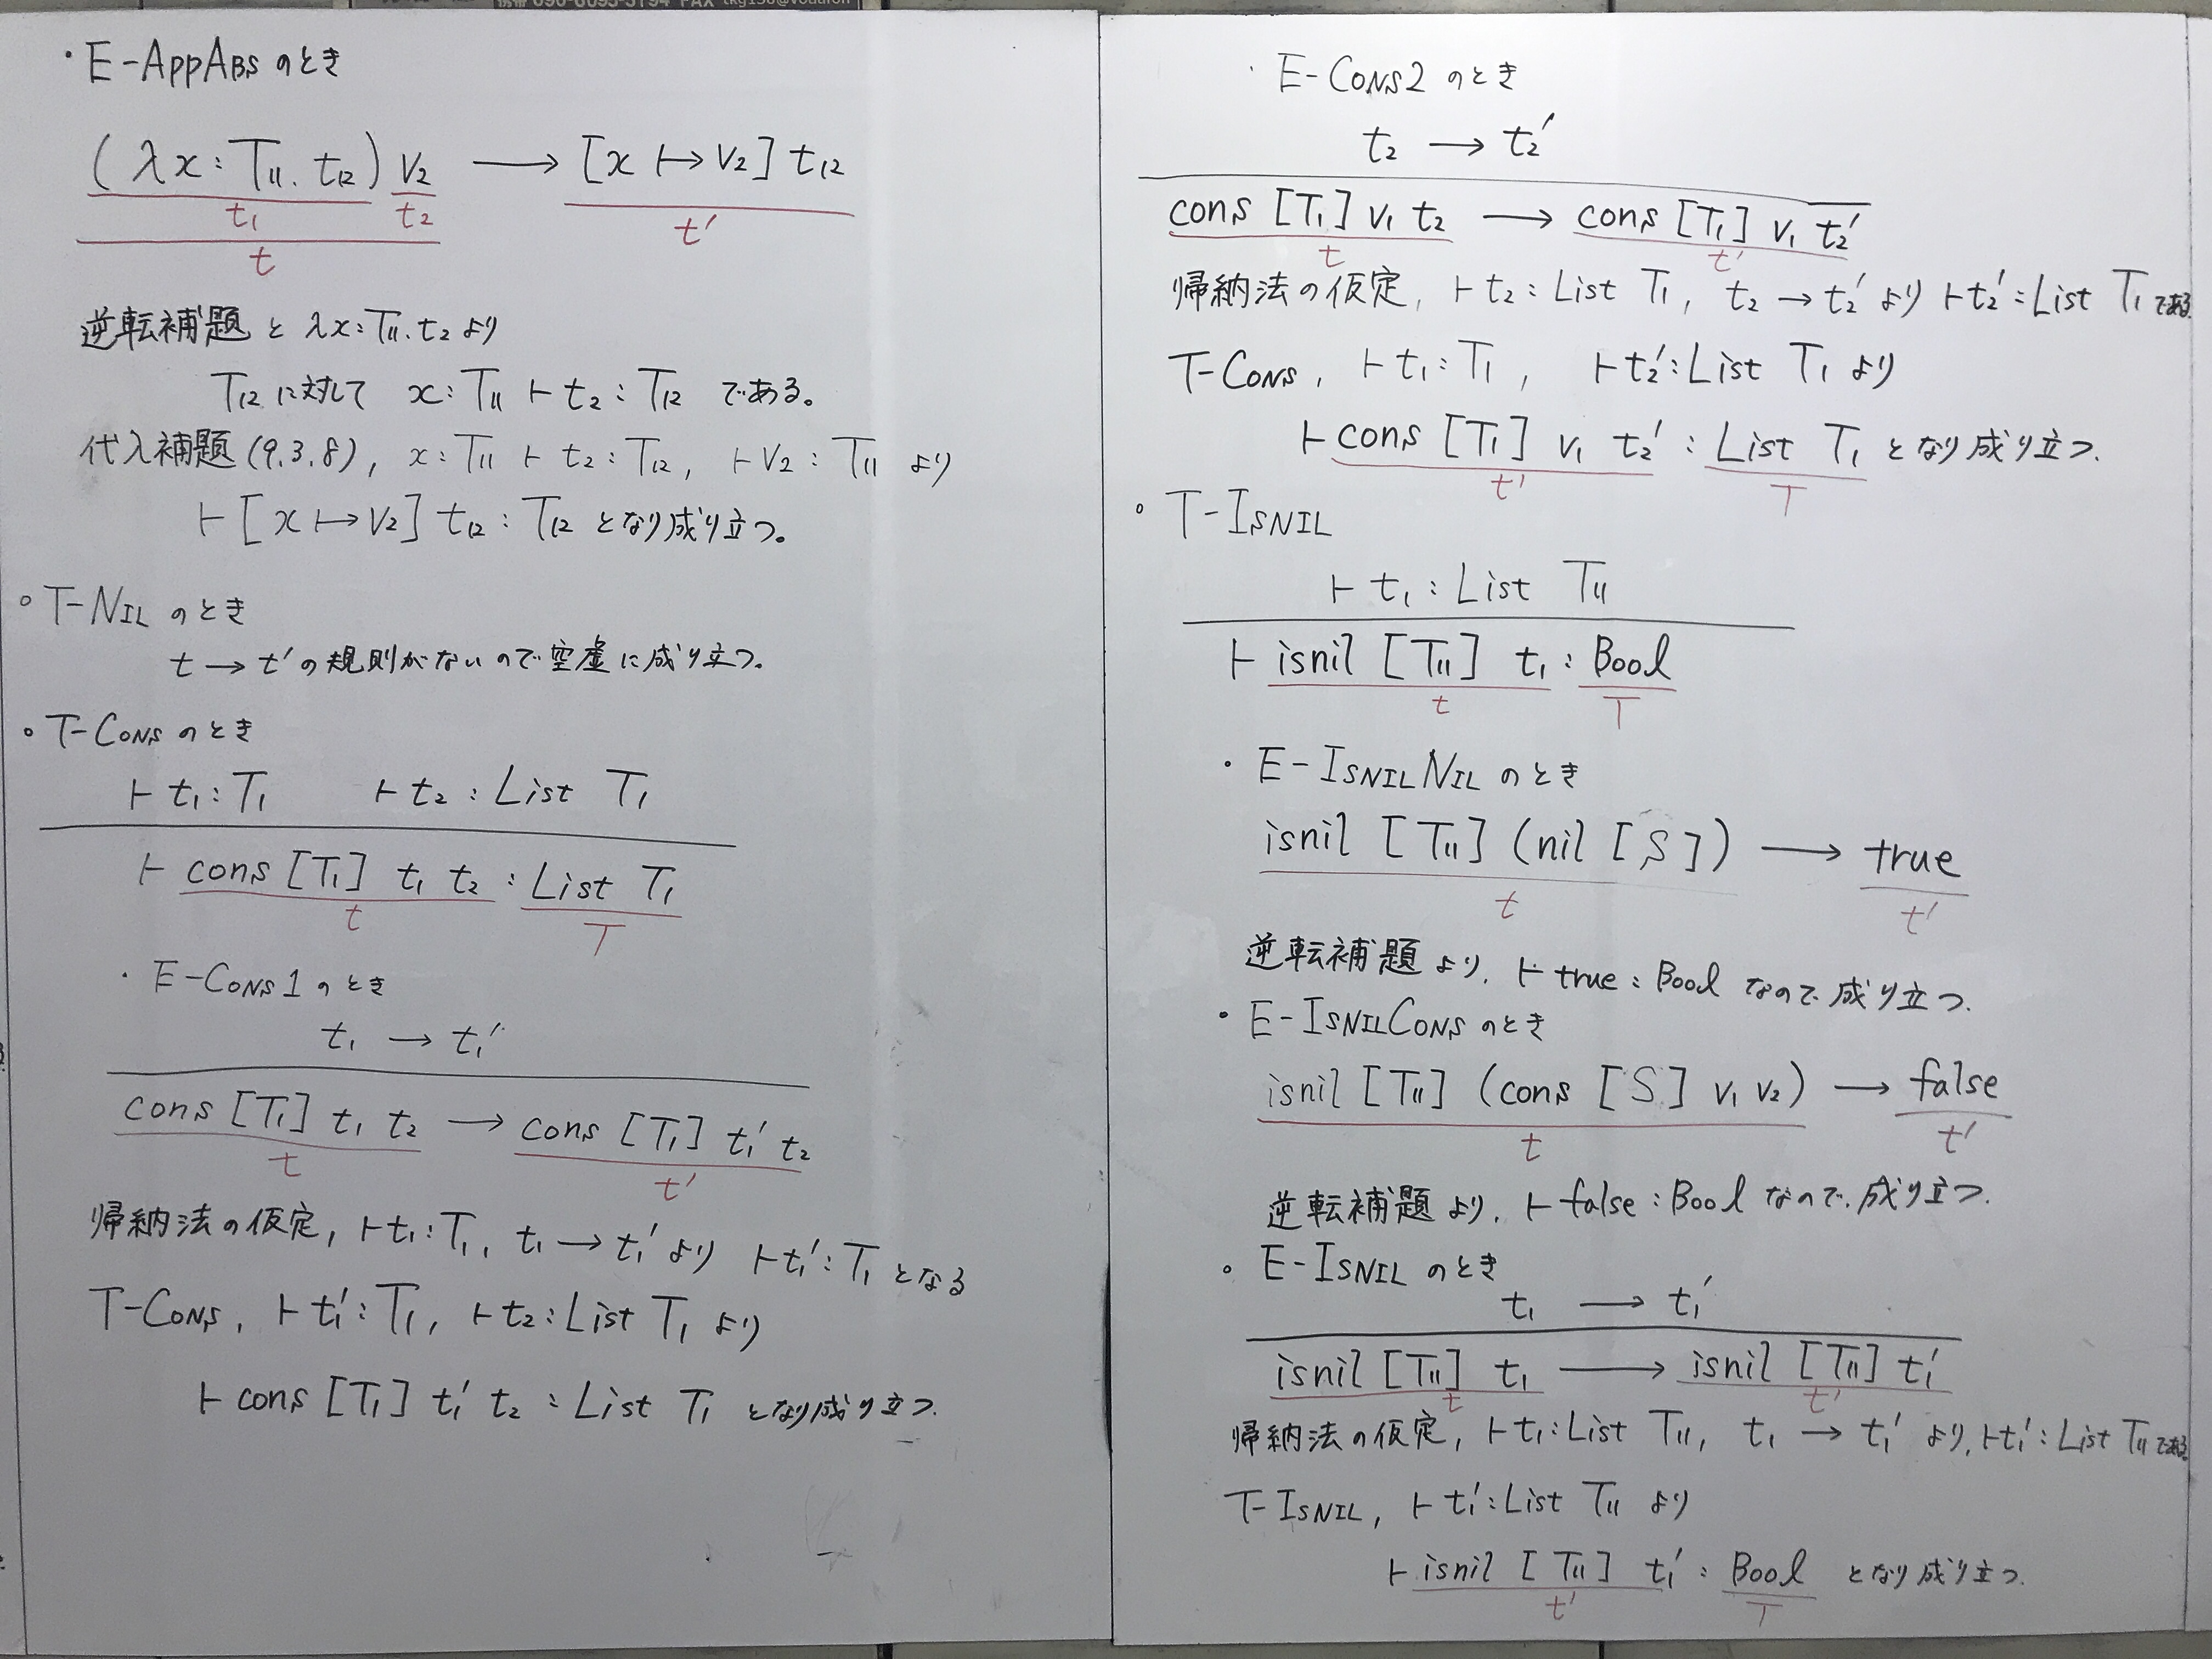 ・E-AppAbs のとき
(λx:T₁₁. t₁₂) v₂ ⟶ [x ↦ v₂] t₁₂
t₁ t₂ t′
t
逆転補題 と λx:T₁₁. t₂ より
T₁₂ に対して x:T₁₁ ⊢ t₂ : T₁₂ である。
代入補題 (9.3.8), x:T₁₁ ⊢ t₂ : T₁₂, ⊢ v₂ : T₁₁ より
⊢ [x ↦ v₂] t₁₂ : T₁₂ となり成り立つ。
∘ T-Nil のとき
t → t′ の規則がないので空虚に成り立つ。
∘ T-Cons のとき
⊢ t₁ : T₁ ⊢ t₂ : List T₁
⊢ cons [T₁] t₁ t₂ : List T₁
t T
・E-Cons1 のとき
t₁ → t₁′
cons [T₁] t₁ t₂ → cons [T₁] t₁′ t₂
t t′
帰納法の仮定, ⊢ t₁ : T₁, t₁ → t₁′ より ⊢ t₁′ : T₁ となる
T-Cons, ⊢ t₁′ : T₁, ⊢ t₂ : List T₁ より
⊢ cons [T₁] t₁′ t₂ : List T₁ となり成り立つ.
・E-Cons2 のとき
t₂ → t₂′
cons [T₁] v₁ t₂ → cons [T₁] v₁ t₂′
t t′
帰納法の仮定, ⊢ t₂ : List T₁, t₂ → t₂′ より ⊢ t₂′ : List T₁ である.
T-Cons, ⊢ t₁ : T₁, ⊢ t₂′ : List T₁ より
⊢ cons [T₁] v₁ t₂′ : List T₁ となり成り立つ.
t′ T
∘ T-Isnil
⊢ t₁ : List T₁₁
⊢ isnil [T₁₁] t₁ : Bool
t T
・E-IsnilNil のとき
isnil [T₁₁] (nil [S]) → true
t t′
逆転補題 より, ⊢ true : Bool なので 成り立つ.
・E-IsnilCons のとき
isnil [T₁₁] (cons [S] v₁ v₂) → false
t t′
逆転補題 より, ⊢ false : Bool なので, 成り立つ.
∘ E-Isnil のとき
t₁ → t₁′
isnil [T₁₁] t₁ → isnil [T₁₁] t₁′
t t′
帰納法の仮定, ⊢ t₁ : List T₁₁, t₁ → t₁′ より, ⊢ t₁′ : List T₁₁ である.
T-Isnil, ⊢ t₁′ : List T₁₁ より
⊢ isnil [T₁₁] t₁′ : Bool となり成り立つ.
t′ T